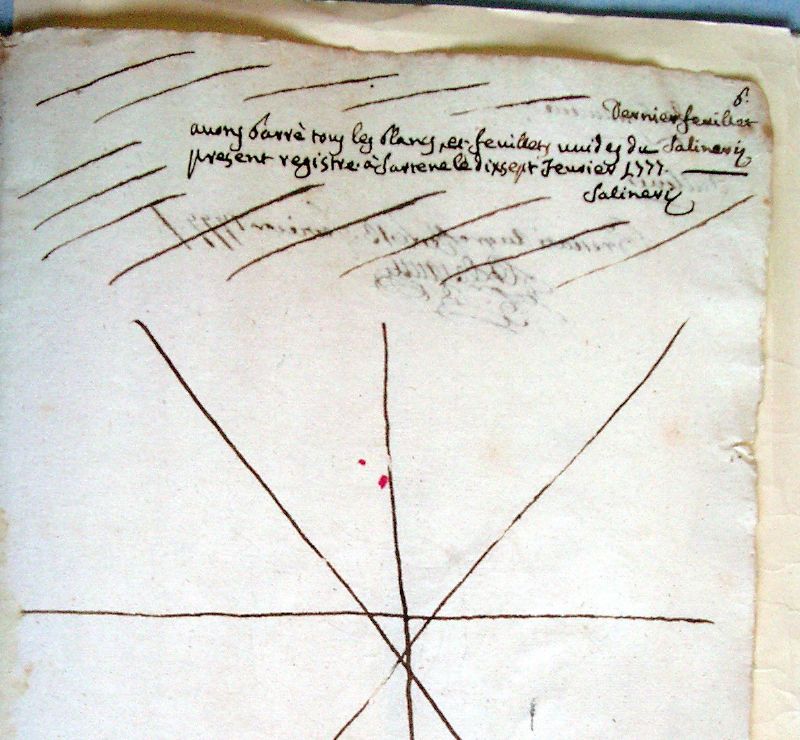 Dernier feuillet
avons barrè tous les blancs, et feuillets vuides du
Salineris
present registre. à Sartene le dix sept Jenvier 1777.
Salineris